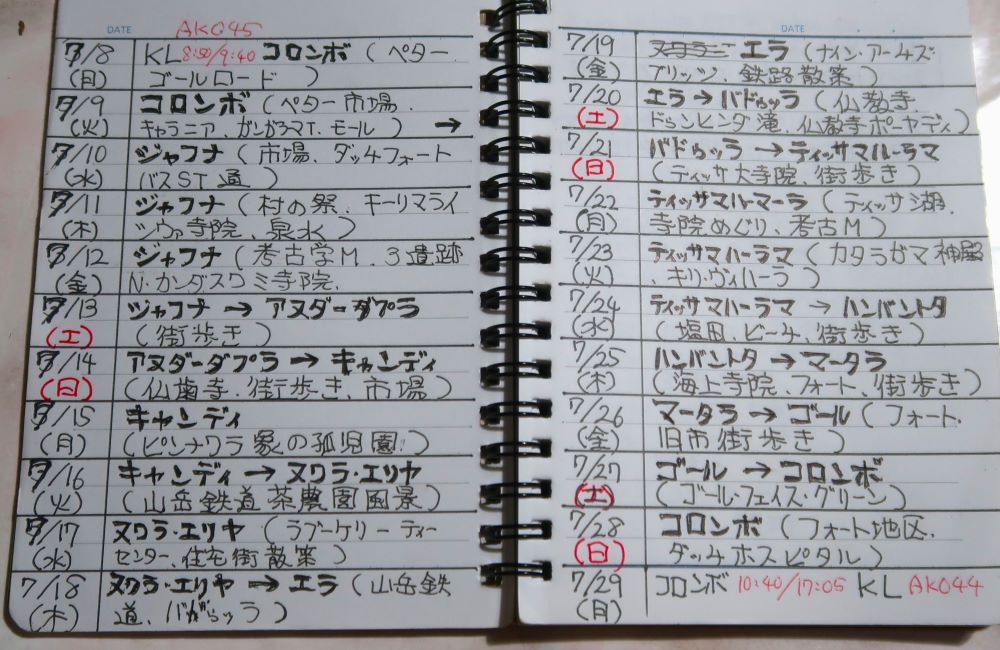 DATE
AK045
7/8 KL 8:50/9:40 コロンボ (ペター.
(月) ゴールロード )
7/9 コロンボ (ペター市場.
(火) キャラニア、ガンガラマT. モール) →
7/10 ジャフナ (市場、ダッチフォート
(水) バスST 通)
7/11 ジャフナ (村の祭、キーリマライ
(木) ツヴァ寺院、泉水)
7/12 ジャフナ (考古学M. 3遺跡
(金) N・カンダスワミ寺院.
7/13 ジャフナ → アヌダーダプラ
(土) (街歩き)
7/14 アヌダーダプラ → キャンディ
(日) (仏歯寺、街歩き、市場)
7/15 キャンディ
(月) (ピンナワラ象の孤児園)
7/16 キャンディ → ヌワラ・エリヤ
(火) (山岳鉄道茶農園風景)
7/17 ヌワラ・エリヤ (ラブーケリーティー
(水) センター、住宅街散策)
7/18 ヌワラ・エリヤ → エラ (山岳鉄
(木) 道、)
DATE
7/19 エラ (ナイン・アームズ
(金) ブリッツ、鉄路散策)
7/20 エラ → バドゥッラ (仏教寺
(土) ドゥンヒンダ滝、仏教寺ポーヤディ)
7/21 バドゥッラ → ティッサマハーラマ
(日) (ティッサ大寺院、街歩き)
7/22 ティッサマハーマーラ (ティッサ湖.
(月) 寺院めぐり、考古M)
7/23 ティッサマハーラマ (カタラガマ神殿
(火) 、キリ・ヴィハーラ)
7/24 ティッサマハーラマ → ハンバントタ
(水) (塩田、ビーチ、街歩き)
7/25 ハンバントタ → マータラ
(木) (海上寺院、フォート、街歩き)
7/26 マータラ → ゴール (フォート.
(金) 旧市街歩き)
7/27 ゴール → コロンボ
(土) (ゴール・フェイス・グリーン)
7/28 コロンボ (フォート地区.
(日) ダッチホスピタル)
7/29 コロンボ 10:40/17:05 KL AK044
(月)